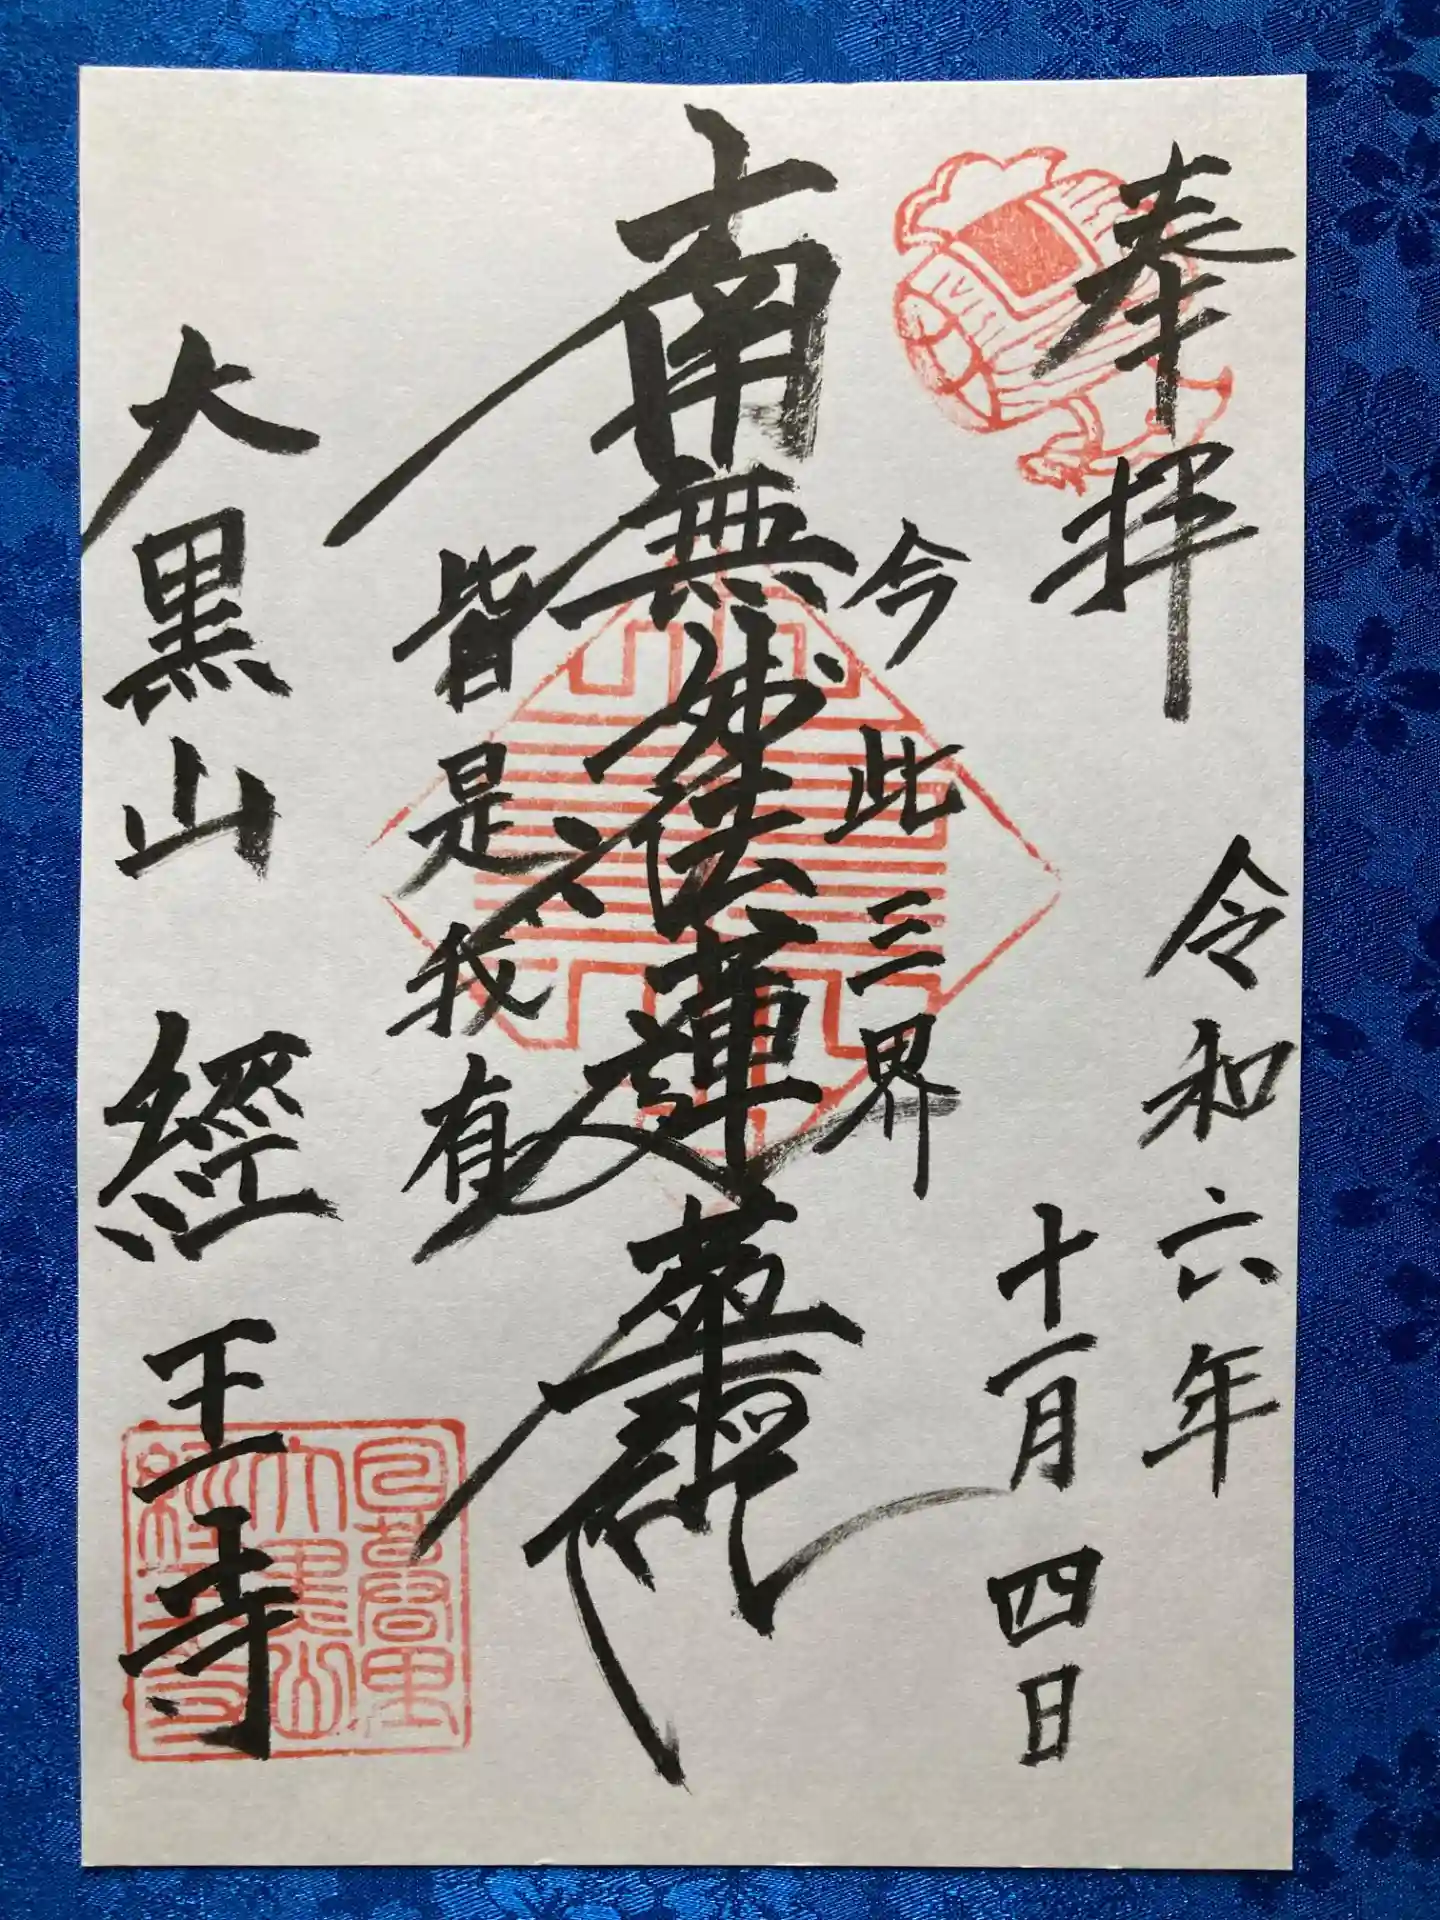 奉拝
令和六年
十一月四日
今此三界
南無妙法蓮華經
皆是我有
大黒山 經王寺
大黒山
經王寺